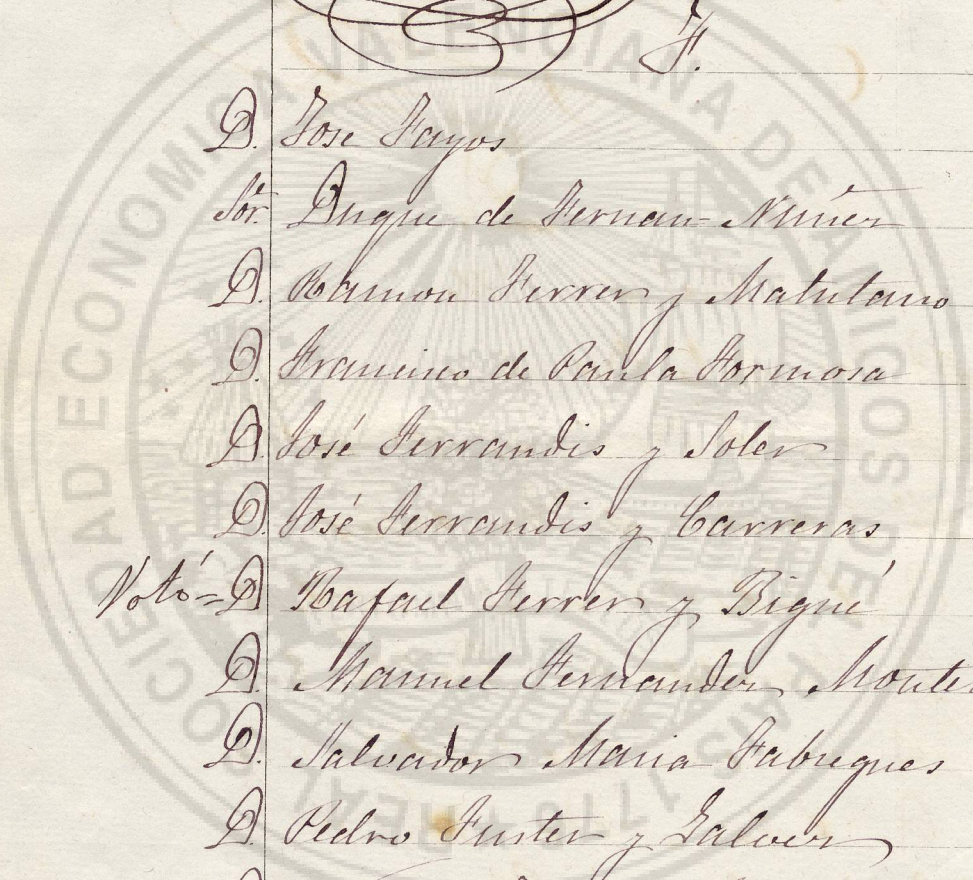 F.
D. Jose Fayos
Sor. Duque de Fernan-Nuñez
D. Ramon Ferrer y Matutano
D. Francisco de Paula Formosa
D. José Ferrandis y Soler
D. José Ferrandis y Carreras
Votó = D. Rafael Ferrer y Bigné
D. Manuel Fernandez Monte
D. Salvador Maria Fabregues
D. Pedro Fuster y Galvez
SOCIEDAD ECONOMICA VALENCIANA DE AMICOS DEL PAIS 1776